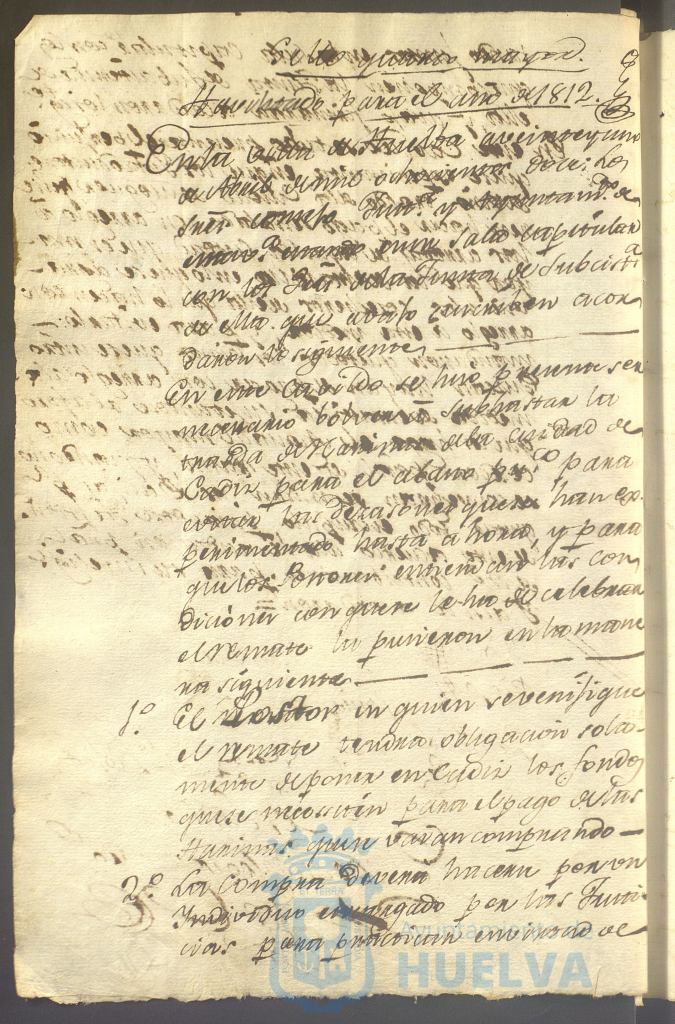 Sello quarto mayor.
Havilitado para el año de 1812.
En la Villa de Huelba a veinte y uno
de Abril de mil ochocientos doce: Los
Sres. Consejo Just.ª y Ayuntam.to de
estando en su Sala Capitular
con los de la Junta de Subcist.ª
de ella que abajo suscriben acor
daron lo siguiente
En este Cavildo se hizo presente ser
necesario bolver a subhastar la
traida de Harinas de la Ciudad de
Cadiz para el abasto pu.co para
evitar las desazones que se han ex
perimentado hasta ahora, y para
que los Postores entiendan las con
diciones con que se le ha de celebrar
el remate las pusieron en la mane
ra siguiente
1.º El Postor en quien se verifique
el remate tendra obligacion sola
mente de poner en Cadiz los fondos
que se necesiten para el pago de las
Harinas que se vaian comprando
2.º La compra devera hacerse por un
Individuo encargado por las Justi
cias para practicar en virtud de
Ayuntamiento de
HUELVA